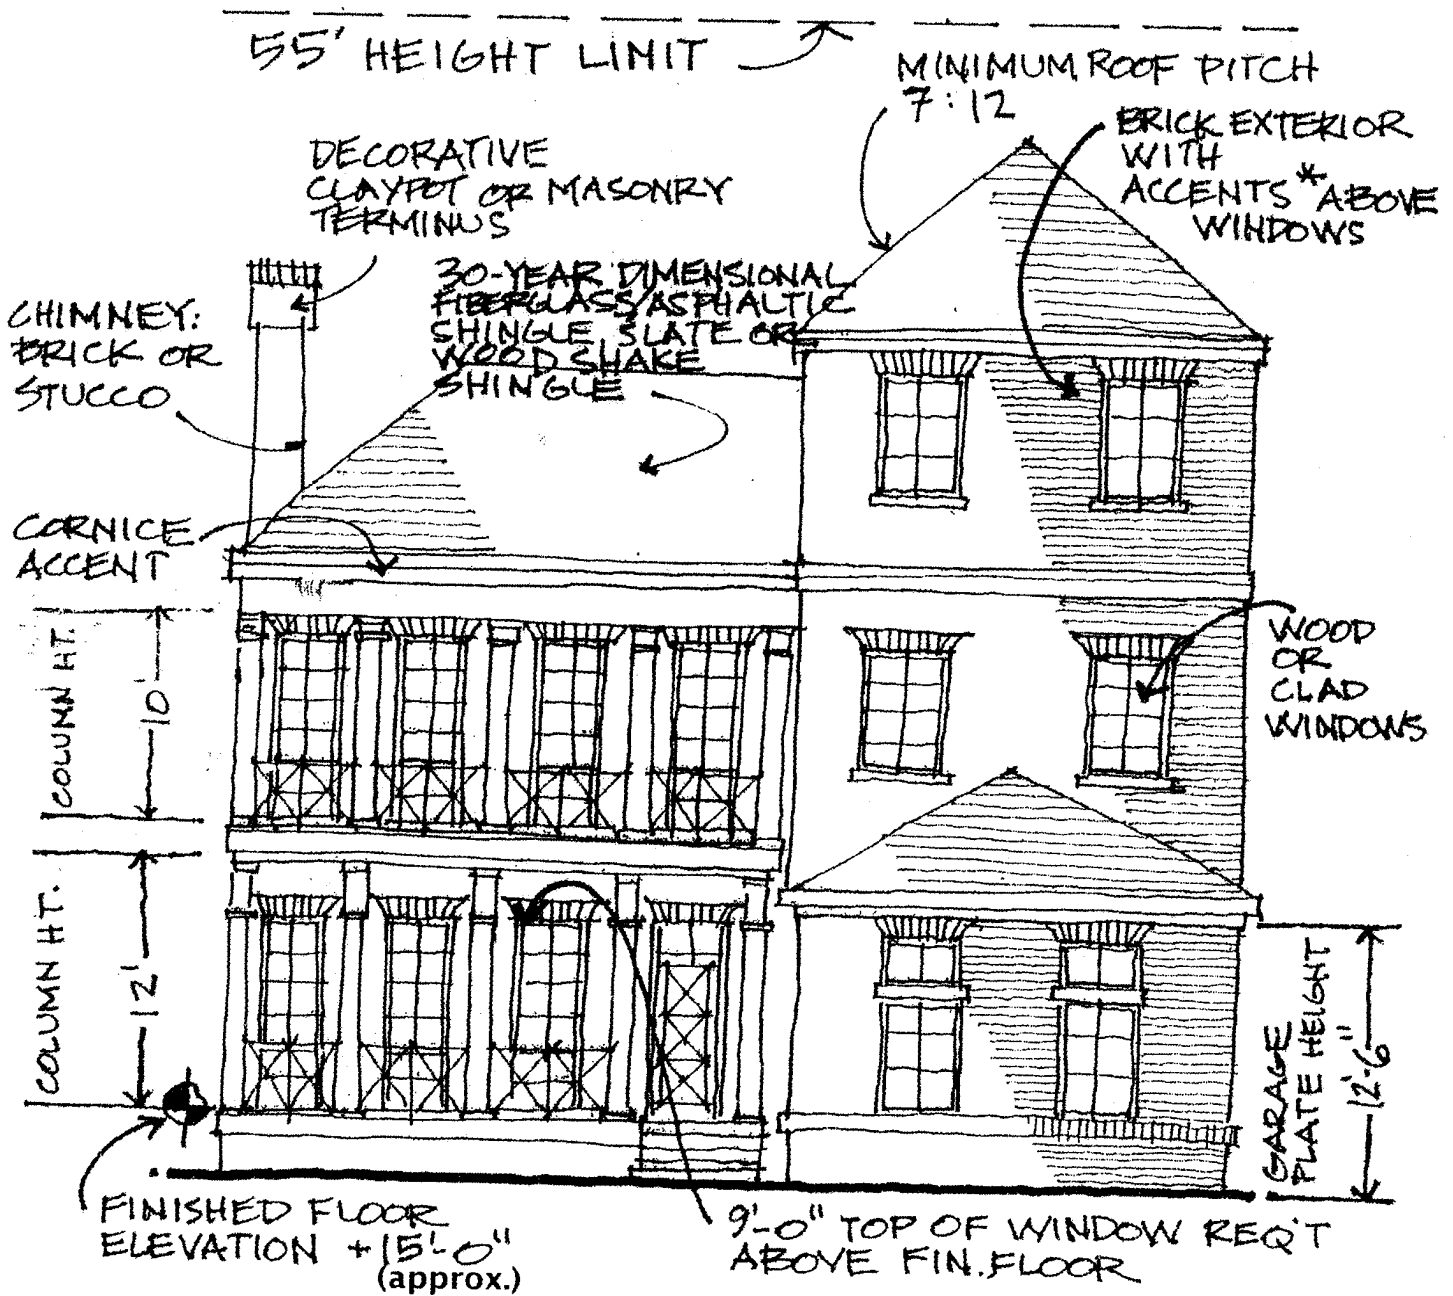 55' HEIGHT LIMIT
MINIMUM ROOF PITCH
7:12
BRICK EXTERIOR
WITH
ACCENTS * ABOVE
WINDOWS
DECORATIVE
CLAYPOT OR MASONRY
TERMINUS
30-YEAR DIMENSIONAL
FIBERGLASS/ASPHALTIC
SHINGLE, SLATE OR
WOOD SHAKE
SHINGLE
CHIMNEY:
BRICK OR
STUCCO
CORNICE
ACCENT
COLUMN HT.
10'
WOOD
OR
CLAD
WINDOWS
COLUMN HT.
12'
GARAGE
PLATE HEIGHT
12'-6"
FINISHED FLOOR
ELEVATION +15'-0"
(approx.)
9'-0" TOP OF WINDOW REQ'T
ABOVE FIN. FLOOR